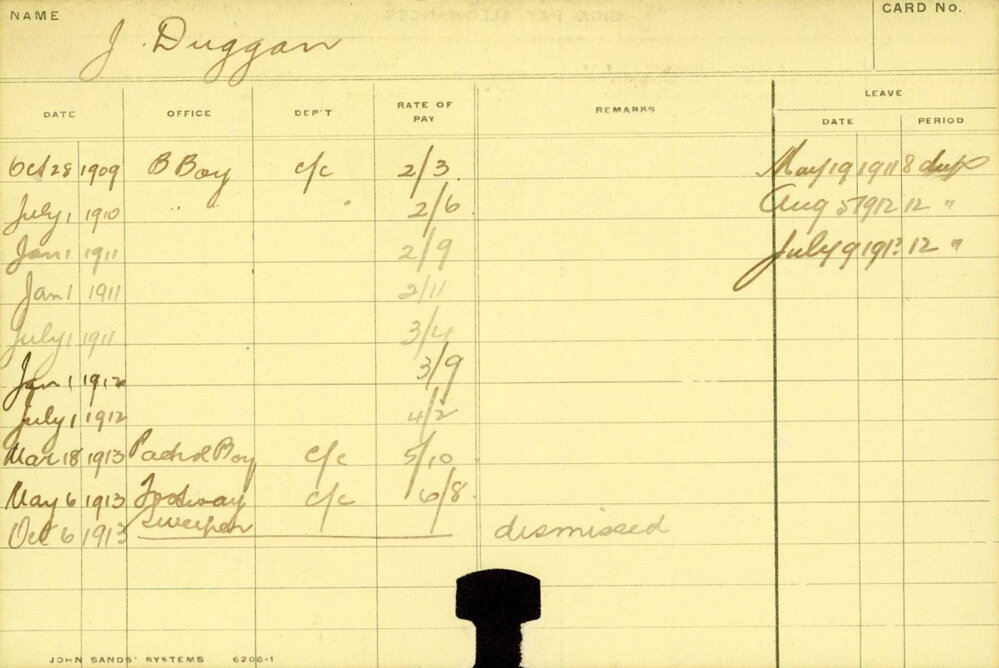 NAME J. Duggan CARD No.
LEAVE
DATE OFFICE DEP'T RATE OF PAY REMARKS DATE PERIOD
Oct 28 1909 B Boy c/c 2/3 May 19 1911 8 days
July 1 1910 " " " 2/6 Aug 5 1912 12 "
Jan 1 1911 2/9 July 9 1913 12 "
Jan 1 1911 2/11
July 1 1911 3/4
Jan 1 1912 3/9
July 1 1912 4/2
Mar 18 1913 Boy c/c 5/10
May 6 1913 c/c 6/8
Sweeper
Oct 6 1913 dismissed
JOHN SANDS' SYSTEMS 6206-1